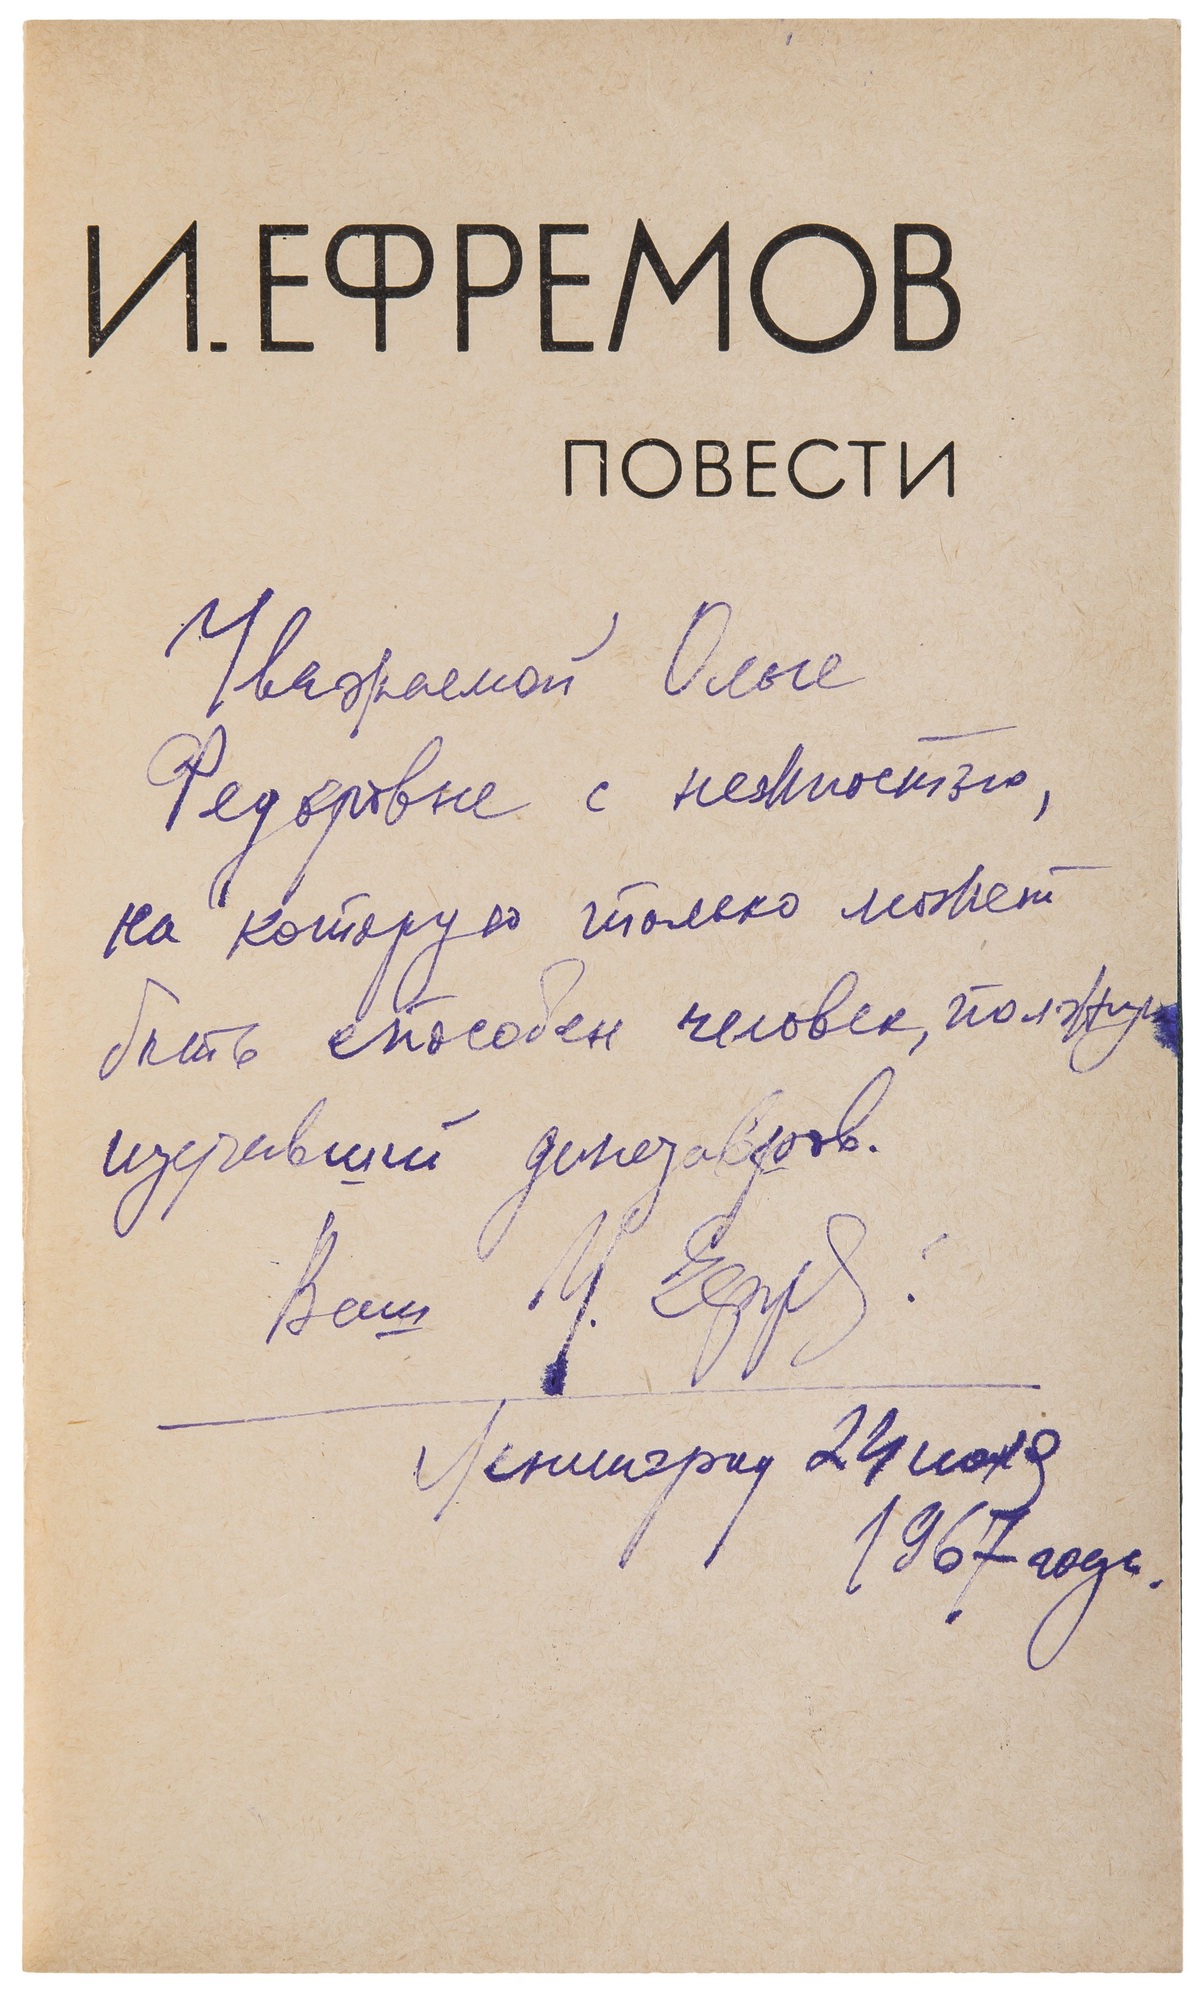 И. ЕФРЕМОВ
ПОВЕСТИ
Уважаемой Ольге
Федоровне с нежностью,
на которую только может
быть способен человек,
изучавший динозавров.
Ваш И. Ефр
Ленинград 24 июля
1967 года.